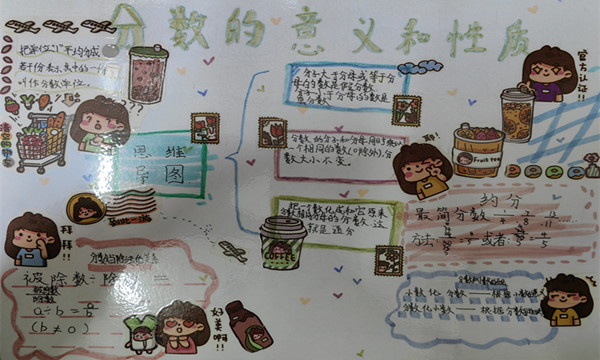 分数的意义和性质
把单位"1"平均分成
若干份表示其中的一份
叫作分数单位。
官方认证!!
分子大于分母或等于分
母的数是假分数
分子小于分母的数是
真分数
分数的分子和分母同时乘以
一个相同的数(0除外),分
数大小不变。
思维
导图
把一个分数化成和它原来
分数相等的分数,这
就是通分
COFFEE
Fruit tea
约分
最简分数
方法:
或者:
拜拜!!
分数与除法的关系
被除数÷除数=
被除数
除数
a÷b=a/b
(b≠0)
好美啊!!
小数化分数——根据小数的意义
分数化小数——根据分数